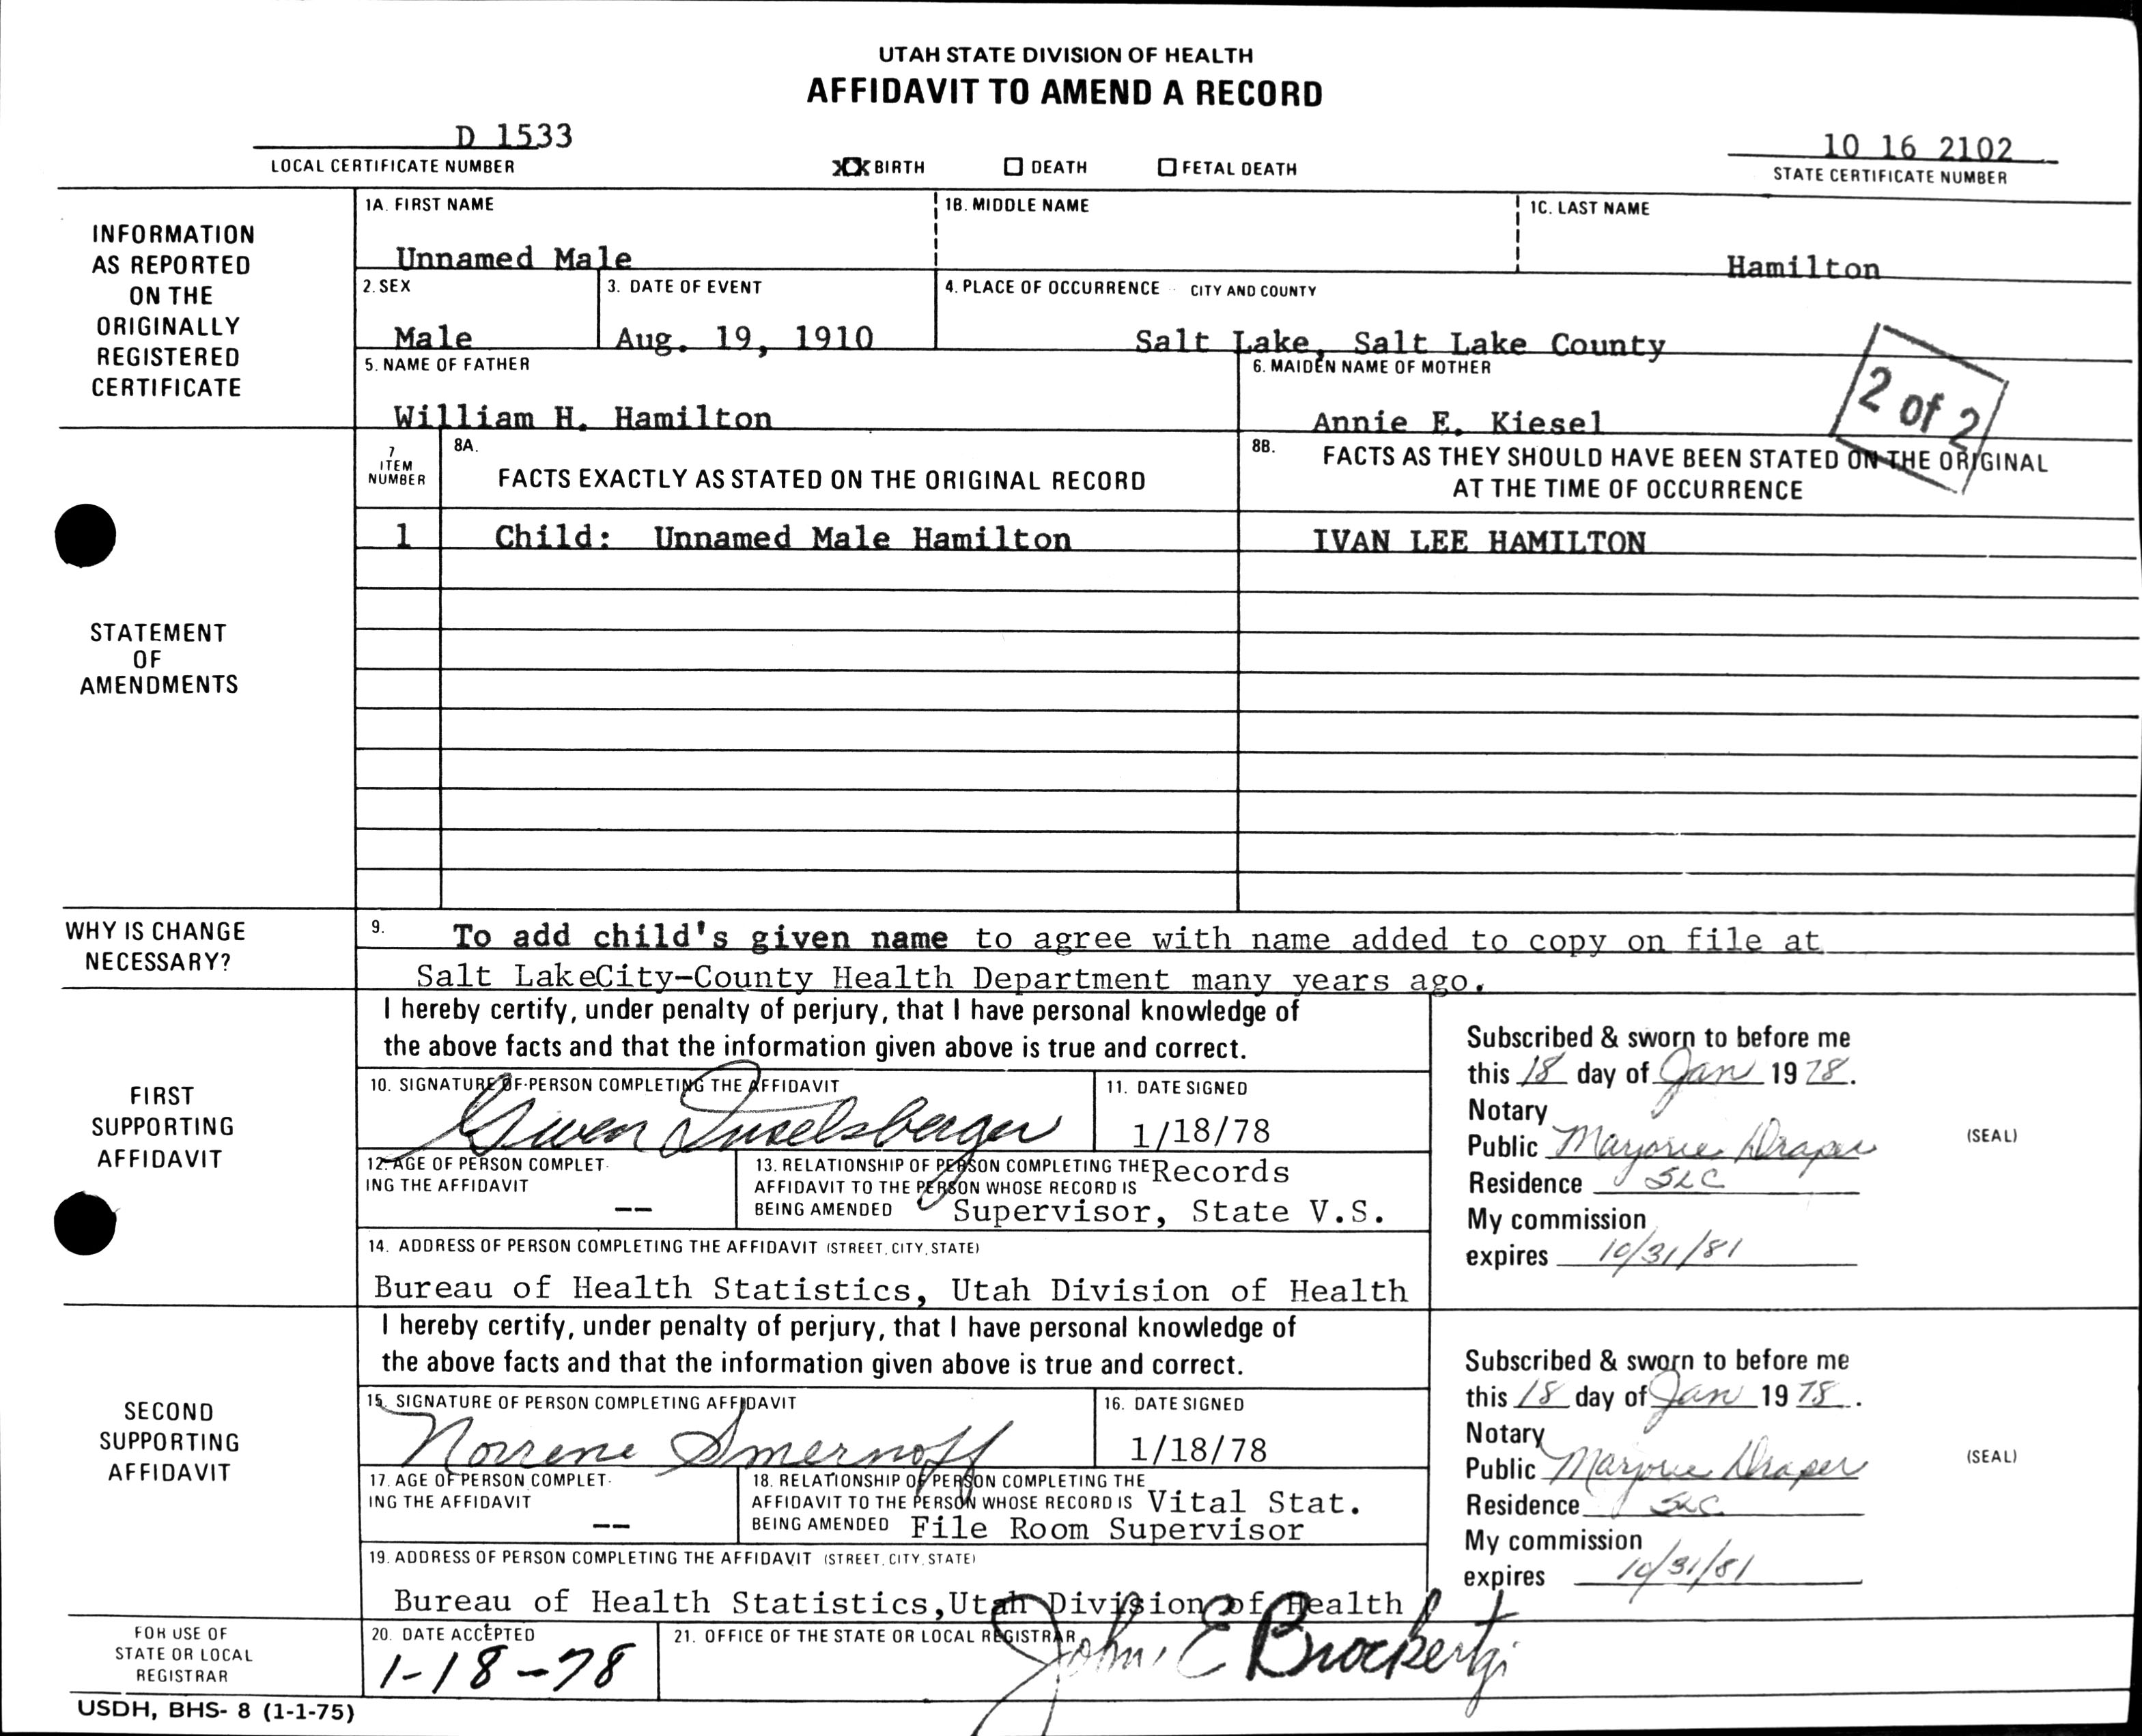 UTAH STATE DIVISION OF HEALTH
AFFIDAVIT TO AMEND A RECORD
D 1533
LOCAL CERTIFICATE NUMBER
XX BIRTH ☐ DEATH ☐ FETAL DEATH
10 16 2102
STATE CERTIFICATE NUMBER
INFORMATION
AS REPORTED
ON THE
ORIGINALLY
REGISTERED
CERTIFICATE
1A. FIRST NAME
Unnamed Male
1B. MIDDLE NAME
1C. LAST NAME
Hamilton
2. SEX
Male
3. DATE OF EVENT
Aug. 19, 1910
4. PLACE OF OCCURRENCE CITY AND COUNTY
Salt Lake, Salt Lake County
5. NAME OF FATHER
William H. Hamilton
6. MAIDEN NAME OF MOTHER
Annie E. Kiesel
2 of 2
STATEMENT
OF
AMENDMENTS
7
ITEM
NUMBER
8A.
FACTS EXACTLY AS STATED ON THE ORIGINAL RECORD
8B.
FACTS AS THEY SHOULD HAVE BEEN STATED ON THE ORIGINAL
AT THE TIME OF OCCURRENCE
1 Child: Unnamed Male Hamilton IVAN LEE HAMILTON
WHY IS CHANGE
NECESSARY?
9. To add child's given name to agree with name added to copy on file at
Salt LakeCity-County Health Department many years ago.
FIRST
SUPPORTING
AFFIDAVIT
I hereby certify, under penalty of perjury, that I have personal knowledge of
the above facts and that the information given above is true and correct.
10. SIGNATURE OF PERSON COMPLETING THE AFFIDAVIT
11. DATE SIGNED
1/18/78
12. AGE OF PERSON COMPLET-
ING THE AFFIDAVIT
--
13. RELATIONSHIP OF PERSON COMPLETING THE
AFFIDAVIT TO THE PERSON WHOSE RECORD IS
BEING AMENDED
Records
Supervisor, State V.S.
14. ADDRESS OF PERSON COMPLETING THE AFFIDAVIT (STREET, CITY, STATE)
Bureau of Health Statistics, Utah Division of Health
Subscribed & sworn to before me
this 18 day of Jan 1978.
Notary
Public Marjorie Draper
(SEAL)
Residence SLC
My commission
expires 10/31/81
SECOND
SUPPORTING
AFFIDAVIT
I hereby certify, under penalty of perjury, that I have personal knowledge of
the above facts and that the information given above is true and correct.
15. SIGNATURE OF PERSON COMPLETING AFFIDAVIT
Norrene Smernoff
16. DATE SIGNED
1/18/78
17. AGE OF PERSON COMPLET-
ING THE AFFIDAVIT
--
18. RELATIONSHIP OF PERSON COMPLETING THE
AFFIDAVIT TO THE PERSON WHOSE RECORD IS
BEING AMENDED
Vital Stat.
File Room Supervisor
19. ADDRESS OF PERSON COMPLETING THE AFFIDAVIT (STREET, CITY, STATE)
Bureau of Health Statistics,Utah Division of Health
Subscribed & sworn to before me
this 18 day of Jan 1978.
Notary
Public Marjorie Draper
(SEAL)
Residence SLC
My commission
expires 10/31/81
FOR USE OF
STATE OR LOCAL
REGISTRAR
20. DATE ACCEPTED
1-18-78
21. OFFICE OF THE STATE OR LOCAL REGISTRAR
John E
USDH, BHS- 8 (1-1-75)